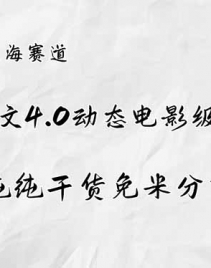 海赛道
文4.0动态电影级
纯干货免米分